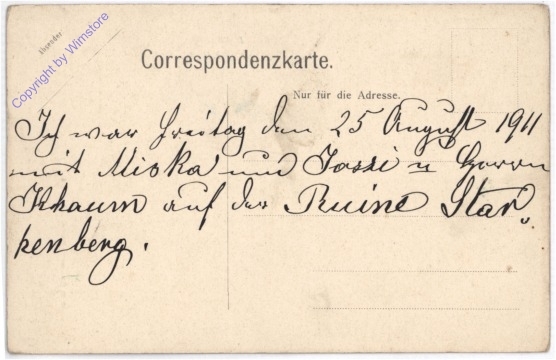 Absender
Copyright by Wimstore
Correspondenzkarte.
Nur für die Adresse.
Ich war Freitag den 25 August 1911
mit Miska und Jossi u Herrn
auf der Ruine Star„
kenberg.